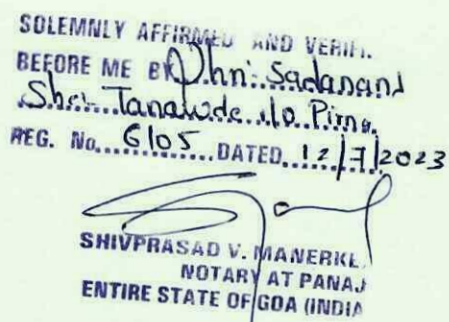 SOLEMNLY AFFIRMED AND VERIFI.
BEFORE ME BY Shri: Sadanand
Shet Tanavade r/o Pirna.
REG. No. 6105 DATED 12/7/2023
SHIVPRASAD V. MANERKE.
NOTARY AT PANAJ
ENTIRE STATE OF GOA (INDIA